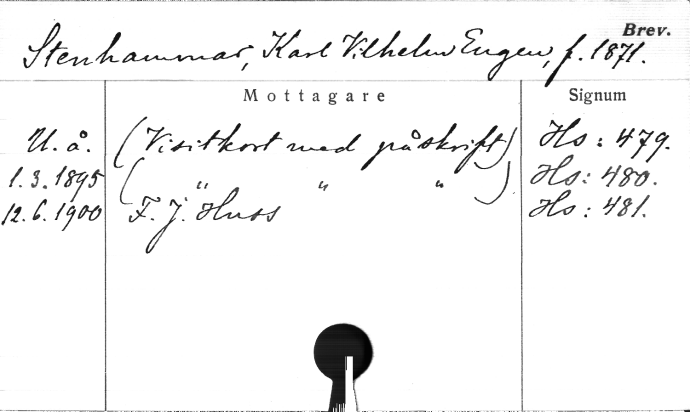 Brev.
Stenhammar, Karl Vilhelm Eugen, f. 1871.
Mottagare Signum
U. å. (Visitkort med påskrift) Hs: 479.
1.3.1895 ( " " " ) Hs: 480.
12.6.1900 F. J. Huss Hs: 481.